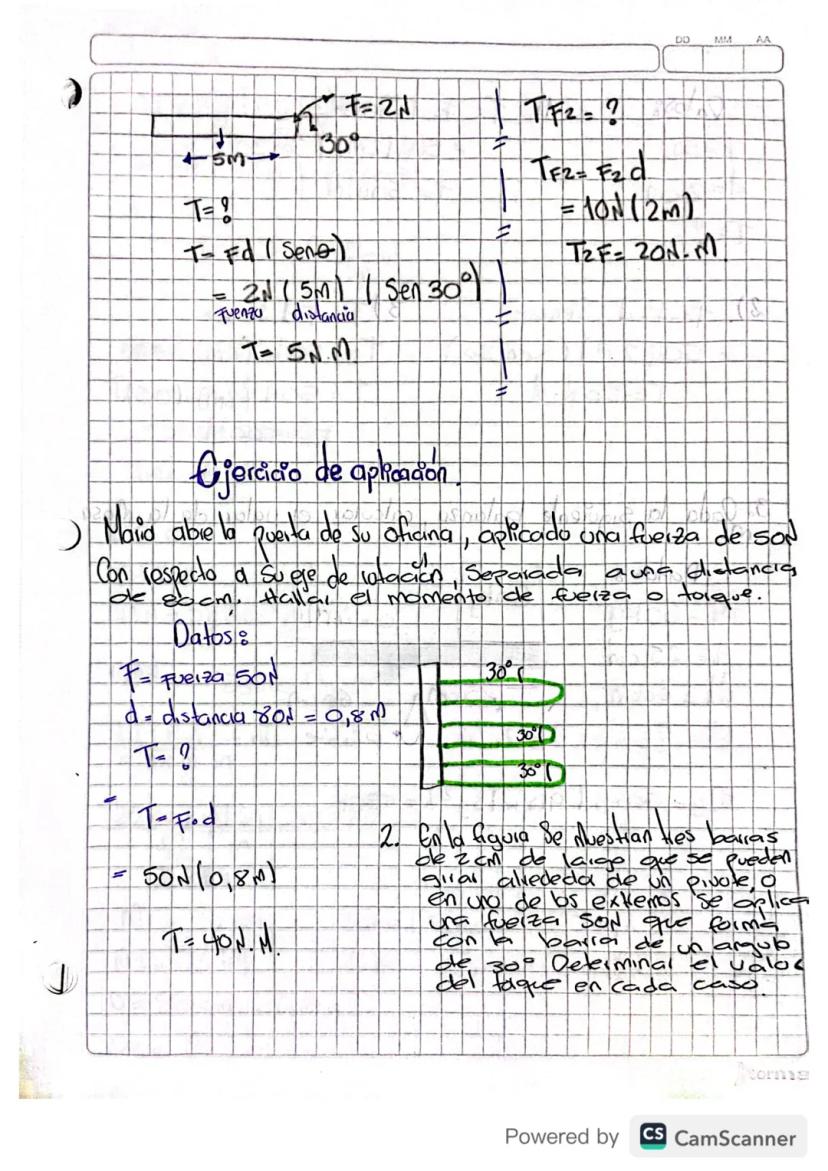 DD MM AA
F= 2N
30°
5m
T= ?
T= Fd (Senθ)
= 2N (5M) (Sen 30°)
Fuerza distancia
T= 5N.M
TF2 = ?
TF2= F2 d
= 10N (2m)
T2F= 20N.M
Ejercicio de aplicación.
) Maria abre la puerta de su oficina, aplicado una fuerza de 50N
Con respecto a su eje de rotación, separada a una distancia
de 80cm. Hallar el momento de fuerza o torque.
Datos:
F= Fuerza 50N
d= distancia 80N = 0,8M
T= ?
T= F.d
= 50N (0,8M)
T= 40N.M.
30°
30°
30°
2. En la figura se muestran tres barras
de 2cm de largo que se pueden
girar alrededa de un pivote, o
en uno de los extremos se aplica
una fuerza 50N que forma
con la barra de un angulo
de 30° Determinar el valor
del toque en cada caso.
norma
Powered by CS CamScanner